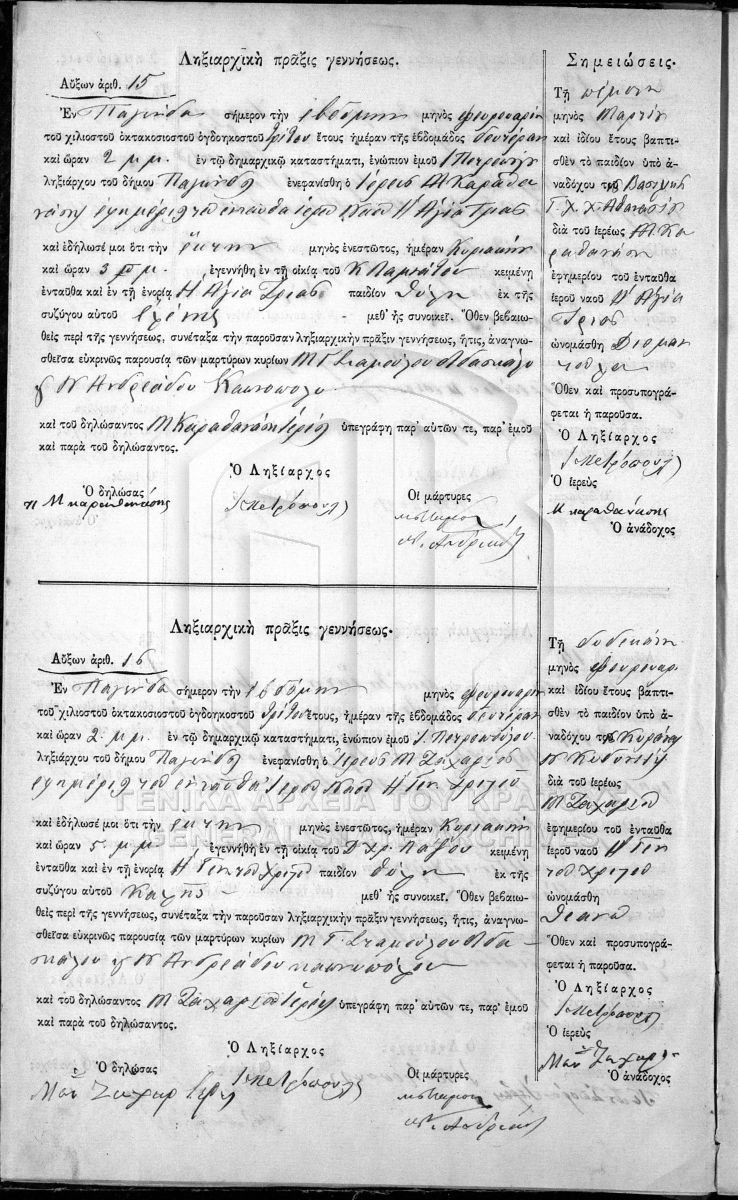 Ληξιαρχικὴ πρᾶξις γεννήσεως.
Αὔξων ἀριθ. 15
Ἐν Παγώνδα σήμερον τὴν ἑβδόμην μηνὸς φευρουαρίου
τοῦ χιλιοστοῦ ὀκτακοσιοστοῦ ὀγδοηκοστοῦ τρίτου ἔτους ἡμέραν τῆς ἑβδομάδος δευτέραν
καὶ ὥραν 2 μ μ. ἐν τῷ δημαρχικῷ καταστήματι, ἐνώπιον ἐμοῦ
ληξιάρχου τοῦ δήμου ἐνεφανίσθη ὁ Ἱερεὺς Μ Καραθα
νάσης ἐφημέριος τοῦ ἐνταῦθα Ἱεροῦ Ναοῦ Ἡ Ἁγία Τριας
καὶ ἐδήλωσέ μοι ὅτι τὴν ἕκτην μηνὸς ἐνεστῶτος, ἡμέραν Κυριακὴν
καὶ ὥραν 3 π μ. ἐγεννήθη ἐν τῇ οἰκίᾳ τοῦ Κ κειμένη
ἐνταῦθα καὶ ἐν τῇ ἐνορίᾳ Ἡ Ἁγία Τριας παιδίον θύλη ἐκ τῆς
συζύγου αὐτοῦ Ἑλένης μεθ' ἧς συνοικεῖ. Ὅθεν βεβαιω-
θεὶς περὶ τῆς γεννήσεως, συνέταξα τὴν παροῦσαν ληξιαρχικὴν πρᾶξιν γεννήσεως, ἥτις, ἀναγνω-
σθεῖσα εὐκρινῶς παρουσίᾳ τῶν μαρτύρων κυρίων Μ Γ Σταμούλου διδασκάλου
Ν Ἀνδρεάδου
καὶ τοῦ δηλώσαντος Μ Καραθανάση Ἱερέως ὑπεγράφη παρ' αὐτῶν τε, παρ' ἐμοῦ
καὶ παρὰ τοῦ δηλώσαντος.
Ὁ δηλώσας
Μ καραθανάσης
Ὁ Ληξίαρχος
Οἱ μάρτυρες
Σημειώσεις.
Τῇ πέμπτῃ
μηνὸς Μαρτίου
καὶ ἰδίου ἔτους βαπτι-
σθὲν τὸ παιδίον ὑπὸ ἀ-
ναδόχου τῆς
Γ. Χ Χ Ἀθανασίου
διὰ τοῦ ἱερέως Μ Κα
ραθανάση
ἐφημερίου τοῦ ἐνταῦθα
ἱεροῦ ναοῦ Ἡ Ἁγία
Τριας
ὠνομάσθη Διαμαν
τούλα
Ὅθεν καὶ προσυπογρά-
φεται ἡ παροῦσα.
Ὁ Ληξίαρχος
Ὁ ἱερεὺς
Μ καραθανάσης
Ὁ ἀνάδοχος
Ληξιαρχικὴ πρᾶξις γεννήσεως.
Αὔξων ἀριθ. 16
Ἐν Παγώνδα σήμερον τὴν ἑβδόμην μηνὸς φευρουαρίου
τοῦ χιλιοστοῦ ὀκτακοσιοστοῦ ὀγδοηκοστοῦ τρίτου ἔτους, ἡμέραν τῆς ἑβδομάδος δευτέραν
καὶ ὥραν 2. μ μ. ἐν τῷ δημαρχικῷ καταστήματι, ἐνώπιον ἐμοῦ
ληξιάρχου τοῦ δήμου ἐνεφανίσθη ὁ Ἱερεὺς Μ Ζαχαρίου
ἐφημέριος τοῦ ἐνταῦθα Ἱεροῦ Ναοῦ Ἡ Γεν. Χριστοῦ
καὶ ἐδήλωσέ μοι ὅτι τὴν ἕκτην μηνὸς ἐνεστῶτος, ἡμέραν Κυριακὴν
καὶ ὥραν 5 μ μ ἐγεννήθη ἐν τῇ οἰκίᾳ τοῦ Δ Χρ. κειμένη
ἐνταῦθα καὶ ἐν τῇ ἐνορίᾳ Ἡ Γεν τοῦ Χριστοῦ παιδίον θύλη ἐκ τῆς
συζύγου αὐτοῦ Καλῆς μεθ' ἧς συνοικεῖ. Ὅθεν βεβαιω-
θεὶς περὶ τῆς γεννήσεως, συνέταξα τὴν παροῦσαν ληξιαρχικὴν πρᾶξιν γεννήσεως, ἥτις, ἀναγνω-
σθεῖσα εὐκρινῶς παρουσίᾳ τῶν μαρτύρων κυρίων Μ Γ. Σταμούλου διδα-
σκάλου Ν Ἀνδρεάδου
καὶ τοῦ δηλώσαντος Μ Ζαχαρίου Ἱερέως ὑπεγράφη παρ' αὐτῶν τε, παρ' ἐμοῦ
καὶ παρὰ τοῦ δηλώσαντος.
Ὁ δηλώσας
Ὁ Ληξίαρχος
Οἱ μάρτυρες
Τῇ δωδεκάτῃ
μηνὸς φευρουαρ.
καὶ ἰδίου ἔτους βαπτι-
σθὲν τὸ παιδίον ὑπὸ ἀ-
ναδόχου
διὰ τοῦ ἱερέως
Μ Ζαχαρίου
ἐφημερίου τοῦ ἐνταῦθα
ἱεροῦ ναοῦ Ἡ Γεν
τοῦ Χριστοῦ
ὠνομάσθη
Ὅθεν καὶ προσυπογρά-
φεται ἡ παροῦσα.
Ὁ Ληξίαρχος
Ὁ ἱερεὺς
Ὁ ἀνάδοχος
ΓΕΝΙΚΑ ΑΡΧΕΙΑ ΤΟΥ ΚΡΑΤΟΥΣ